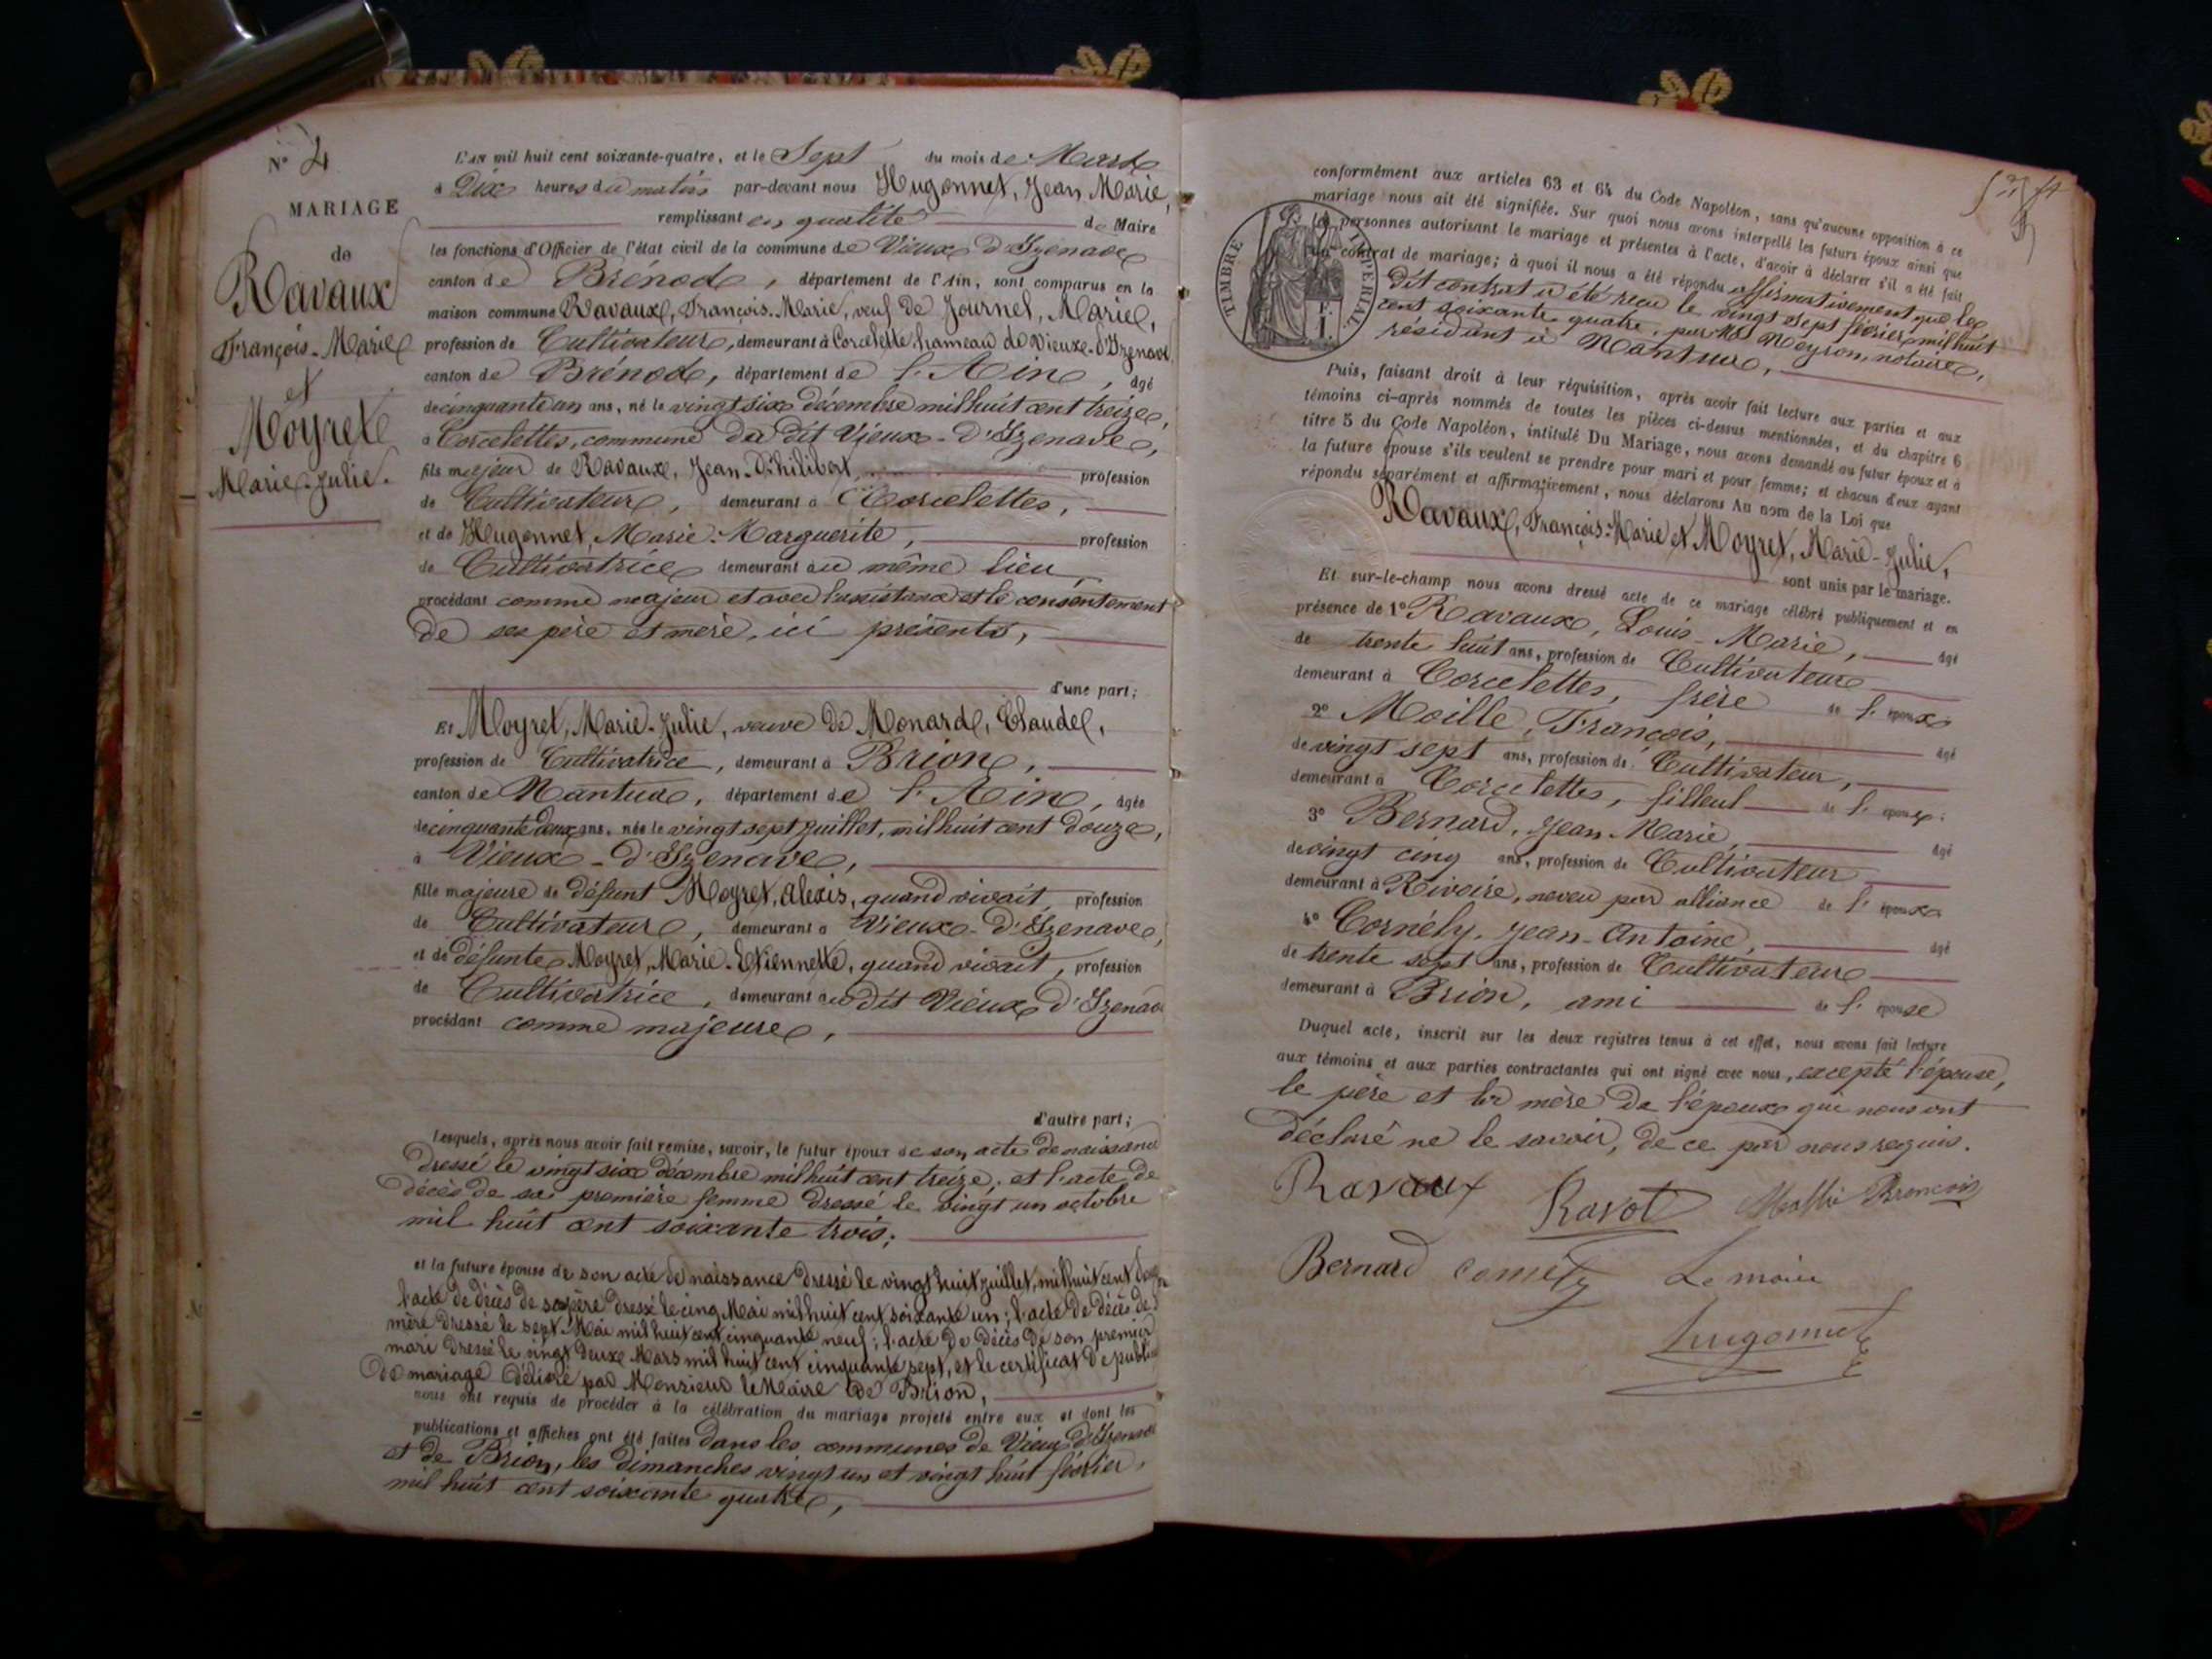 N° 4
MARIAGE
de
Ravaux
François-Marie
et
Moyret
Marie-Julie.
L'an mil huit cent soixante-quatre, et le Sept du mois de Mars
à Dix heures du matin par-devant nous Hugonnet, Jean Marie,
remplissant en qualité de Maire
les fonctions d'Officier de l'état civil de la commune de Vieux d'Izenave
canton de Brénod, département de l'Ain, sont comparus en la
maison commune Ravaux, François-Marie, veuf de Journet, Marie,
profession de Cultivateur, demeurant à Corcelette, hameau de Vieux-d'Izenave,
canton de Brénod, département de l'Ain, âgé
de cinquante un ans, né le vingt six décembre mil huit cent treize,
à Corcelettes, commune du dit Vieux-d'Izenave,
fils majeur de Ravaux, Jean-Philibert, profession
de Cultivateur, demeurant à Corcelettes,
et de Hugonnet, Marie-Marguerite, profession
de Cultivatrice demeurant au même lieu
procédant comme majeur et avec l'assistance et le consentement
de ses père et mère, ici présents,
d'une part;
Et Moyret, Marie-Julie, veuve de Monard, Claude,
profession de Cultivatrice, demeurant à Brion,
canton de Nantua, département de l'Ain, âgée
de cinquante deux ans, née le vingt sept juillet, mil huit cent douze,
à Vieux-d'Izenave,
fille majeure de défunt Moyret, Alexis, quand vivait, profession
de Cultivateur, demeurant à Vieux-d'Izenave,
et de défunte Moyret, Marie-Etiennette, quand vivait, profession
de Cultivatrice, demeurant au dit Vieux d'Izenave
procédant comme majeure,
d'autre part;
Lesquels, après nous avoir fait remise, savoir, le futur époux de son acte de naissance
dressé le vingt six décembre mil huit cent treize; et l'acte de
décès de sa première femme dressé le vingt un octobre
mil huit cent soixante trois;
et la future épouse de son acte de naissance dressé le vingt huit juillet, mil huit cent douze
l'acte de décès de son père dressé le cinq Mai mil huit cent soixante un; l'acte de décès de
mère dressé le sept Mai mil huit cent cinquante neuf; l'acte de décès de son premier
mari dressé le vingt deux Mars mil huit cent cinquante sept, et le certificat de
de mariage délivré par Monsieur le Maire de Brion,
nous ont requis de procéder à la célébration du mariage projeté entre eux et dont les
publications et affiches ont été faites dans les communes de Vieux d'Izenave
et de Brion, les dimanches vingt un et vingt huit février,
mil huit cent soixante quatre,
conformément aux articles 63 et 64 du Code Napoléon, sans qu'aucune opposition à ce
mariage nous ait été signifiée. Sur quoi nous avons interpellé les futurs époux ainsi que
les personnes autorisant le mariage et présentes à l'acte, d'avoir à déclarer s'il a été fait
un contrat de mariage; à quoi il nous a été répondu affirmativement que le
dit contrat a été reçu le vingt sept février mil huit
cent soixante quatre, par Me Moyron, notaire,
résidant à Nantua,
TIMBRE IMPERIAL
Puis, faisant droit à leur réquisition, après avoir fait lecture aux parties et aux
témoins ci-après nommés de toutes les pièces ci-dessus mentionnées, et du chapitre 6
titre 5 du Code Napoléon, intitulé Du Mariage, nous avons demandé au futur époux et à
la future épouse s'ils veulent se prendre pour mari et pour femme; et chacun d'eux ayant
répondu séparément et affirmativement, nous déclarons Au nom de la Loi que
Ravaux, François-Marie et Moyret, Marie-Julie,
sont unis par le mariage.
Et sur-le-champ nous avons dressé acte de ce mariage célébré publiquement et en
présence de 1° Ravaux, Louis-Marie, âgé
de trente huit ans, profession de Cultivateur
demeurant à Corcelettes, frère de l'époux
2° Moille, François, âgé
de vingt sept ans, profession de Cultivateur,
demeurant à Corcelettes, filleul de l'époux;
3° Bernard, Jean-Marie, âgé
de vingt cinq ans, profession de Cultivateur
demeurant à Rivoire, neveu par alliance de l'époux
4° Cornély, Jean-Antoine, âgé
de trente sept ans, profession de Cultivateur
demeurant à Brion, ami de l'épouse
Duquel acte, inscrit sur les deux registres tenus à cet effet, nous avons fait lecture
aux témoins et aux parties contractantes qui ont signé avec nous, excepté l'épouse,
le père et la mère de l'époux qui nous ont
déclaré ne le savoir, de ce par nous requis.
Ravaux Ravot
Bernard Cornély Le maire
Hugonnet